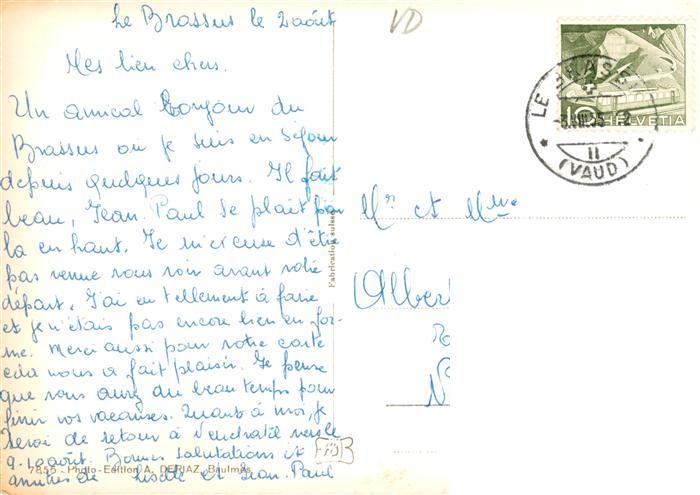 Le Brassus le 2 août
VD
Mes bien chers.
Un amical bonjour du
Brassus ou je suis en séjour
depuis quelques jours. Il fait
beau, Jean-Paul se plait par
la en haut. Je m'excuse d'être
pas venue vous voir avant votre
départ. J'ai eu tellement à faire
et je n'étais pas encore bien en for-
me. Merci aussi pour votre carte
cela nous a fait plaisir. Je pense
que vous aurez du beau temps pour
finir vos vacances. Quants à moi, je
serai de retour à Neuchâtel vers le
9-10 août. Bonnes salutations et
amitiés de Lisette et Jean-Paul
7856 - Photo-Edition A. DERIAZ, Baulmes
Fabrication suisse
LE BRASSUS
-3.VIII.55
II
(VAUD)
10 HELVETIA
Mr et Mme
Alber